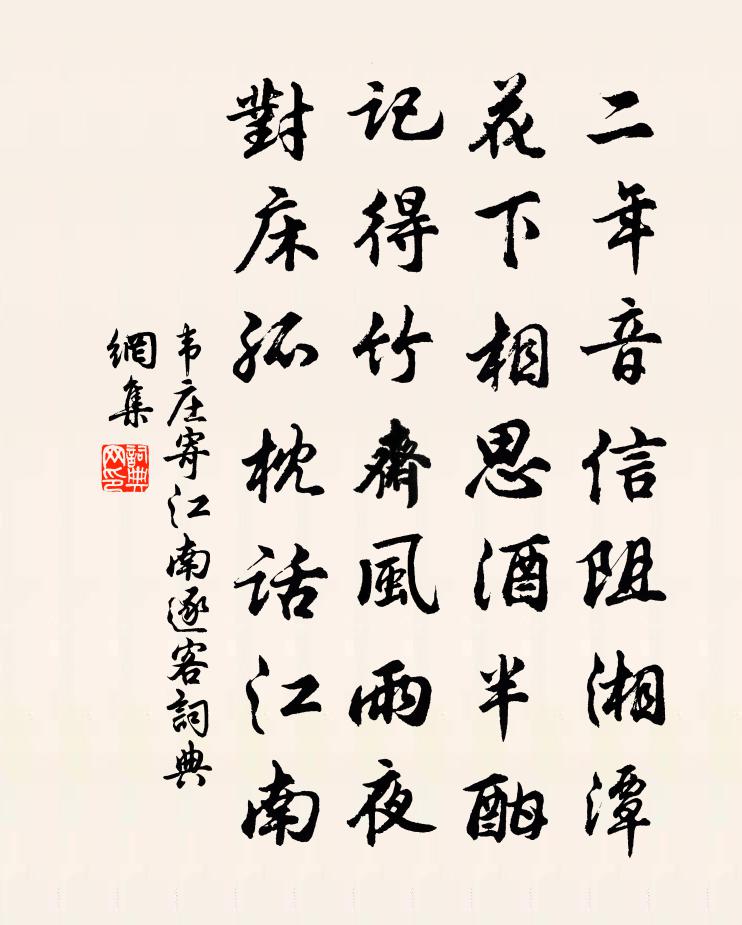 二年音信阻湘潭
花下相思酒半酣
記得竹齋風雨夜
對床孤枕話江南
韦庄寄江南逐客詞典
網集
詞典
网印